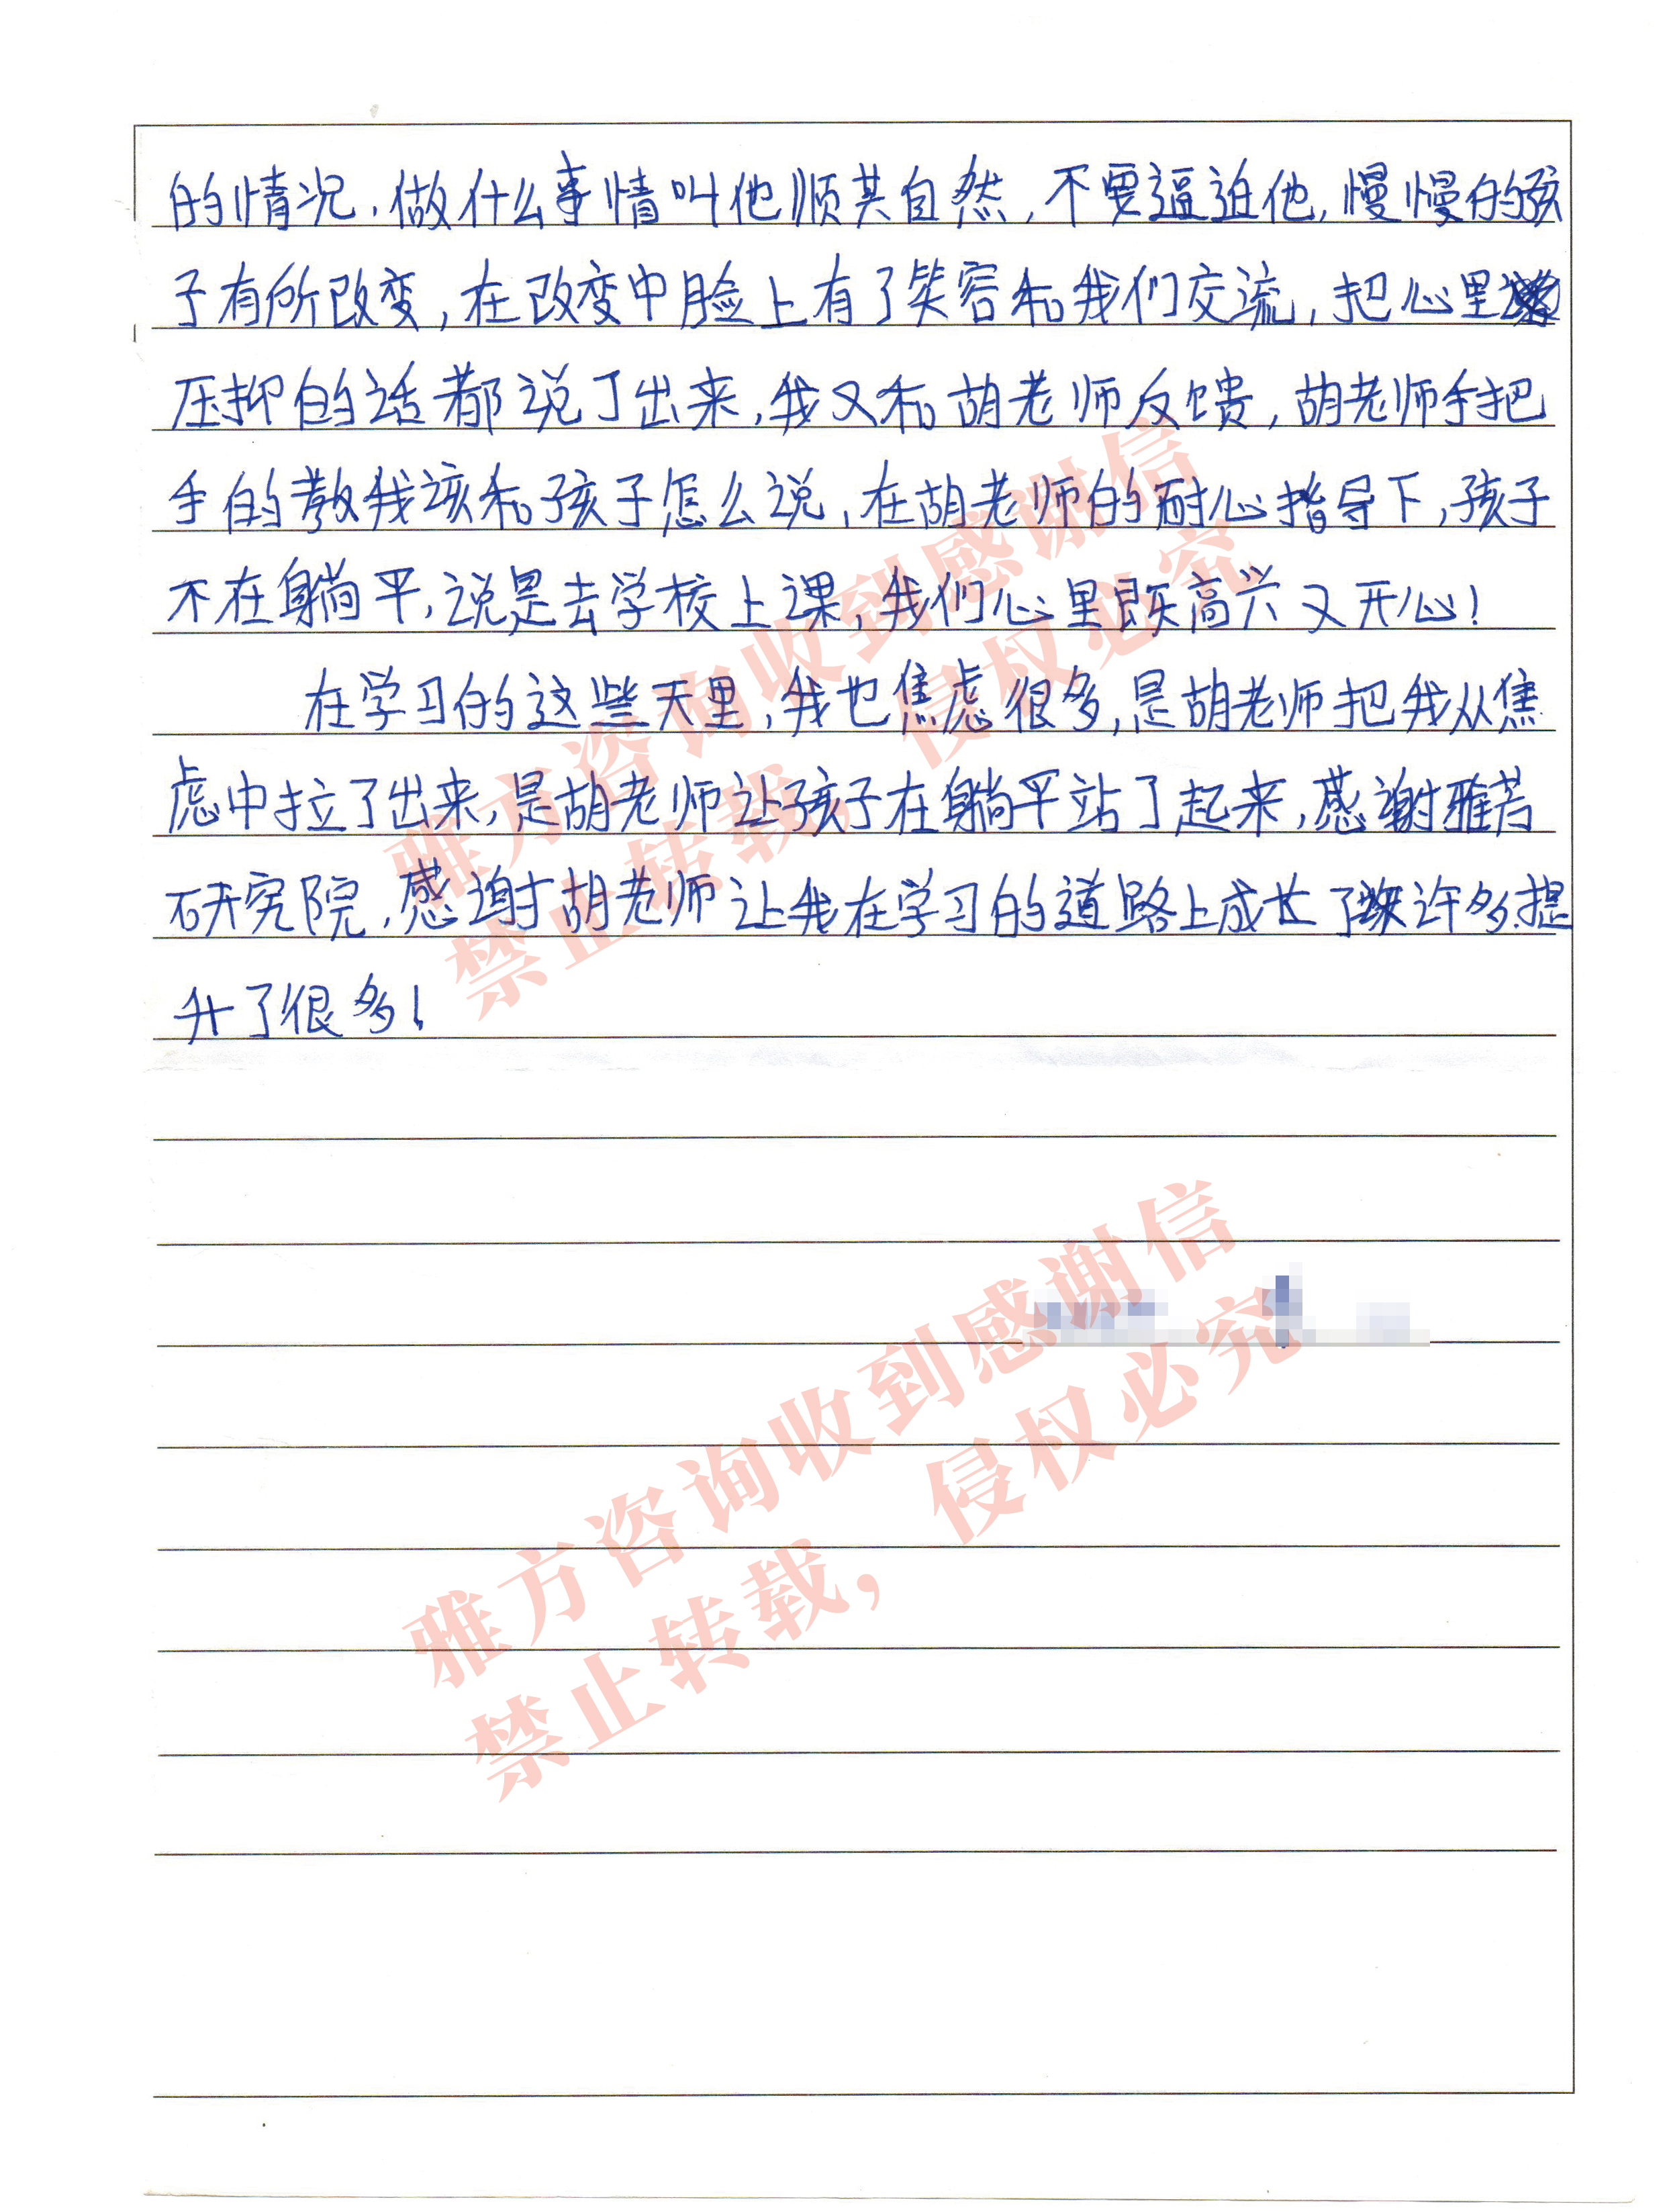 的情况，做什么事情叫他顺其自然，不要逼迫他，慢慢的孩
子有所改变，在改变中脸上有了笑容和我们交流，把心里
压抑的话都说了出来，我又和胡老师反馈，胡老师手把
手的教我该和孩子怎么说，在胡老师的耐心指导下，孩子
不在躺平，说是去学校上课，我们心里既高兴又开心！
在学习的这些天里，我也焦虑很多，是胡老师把我从焦
虑中拉了出来，是胡老师让孩子在躺平站了起来，感谢雅
研究院，感谢胡老师让我在学习的道路上成长了许多，提
升了很多！
雅方咨询收到感谢信
禁止转载，侵权必究
雅方咨询收到感谢信
禁止转载，侵权必究